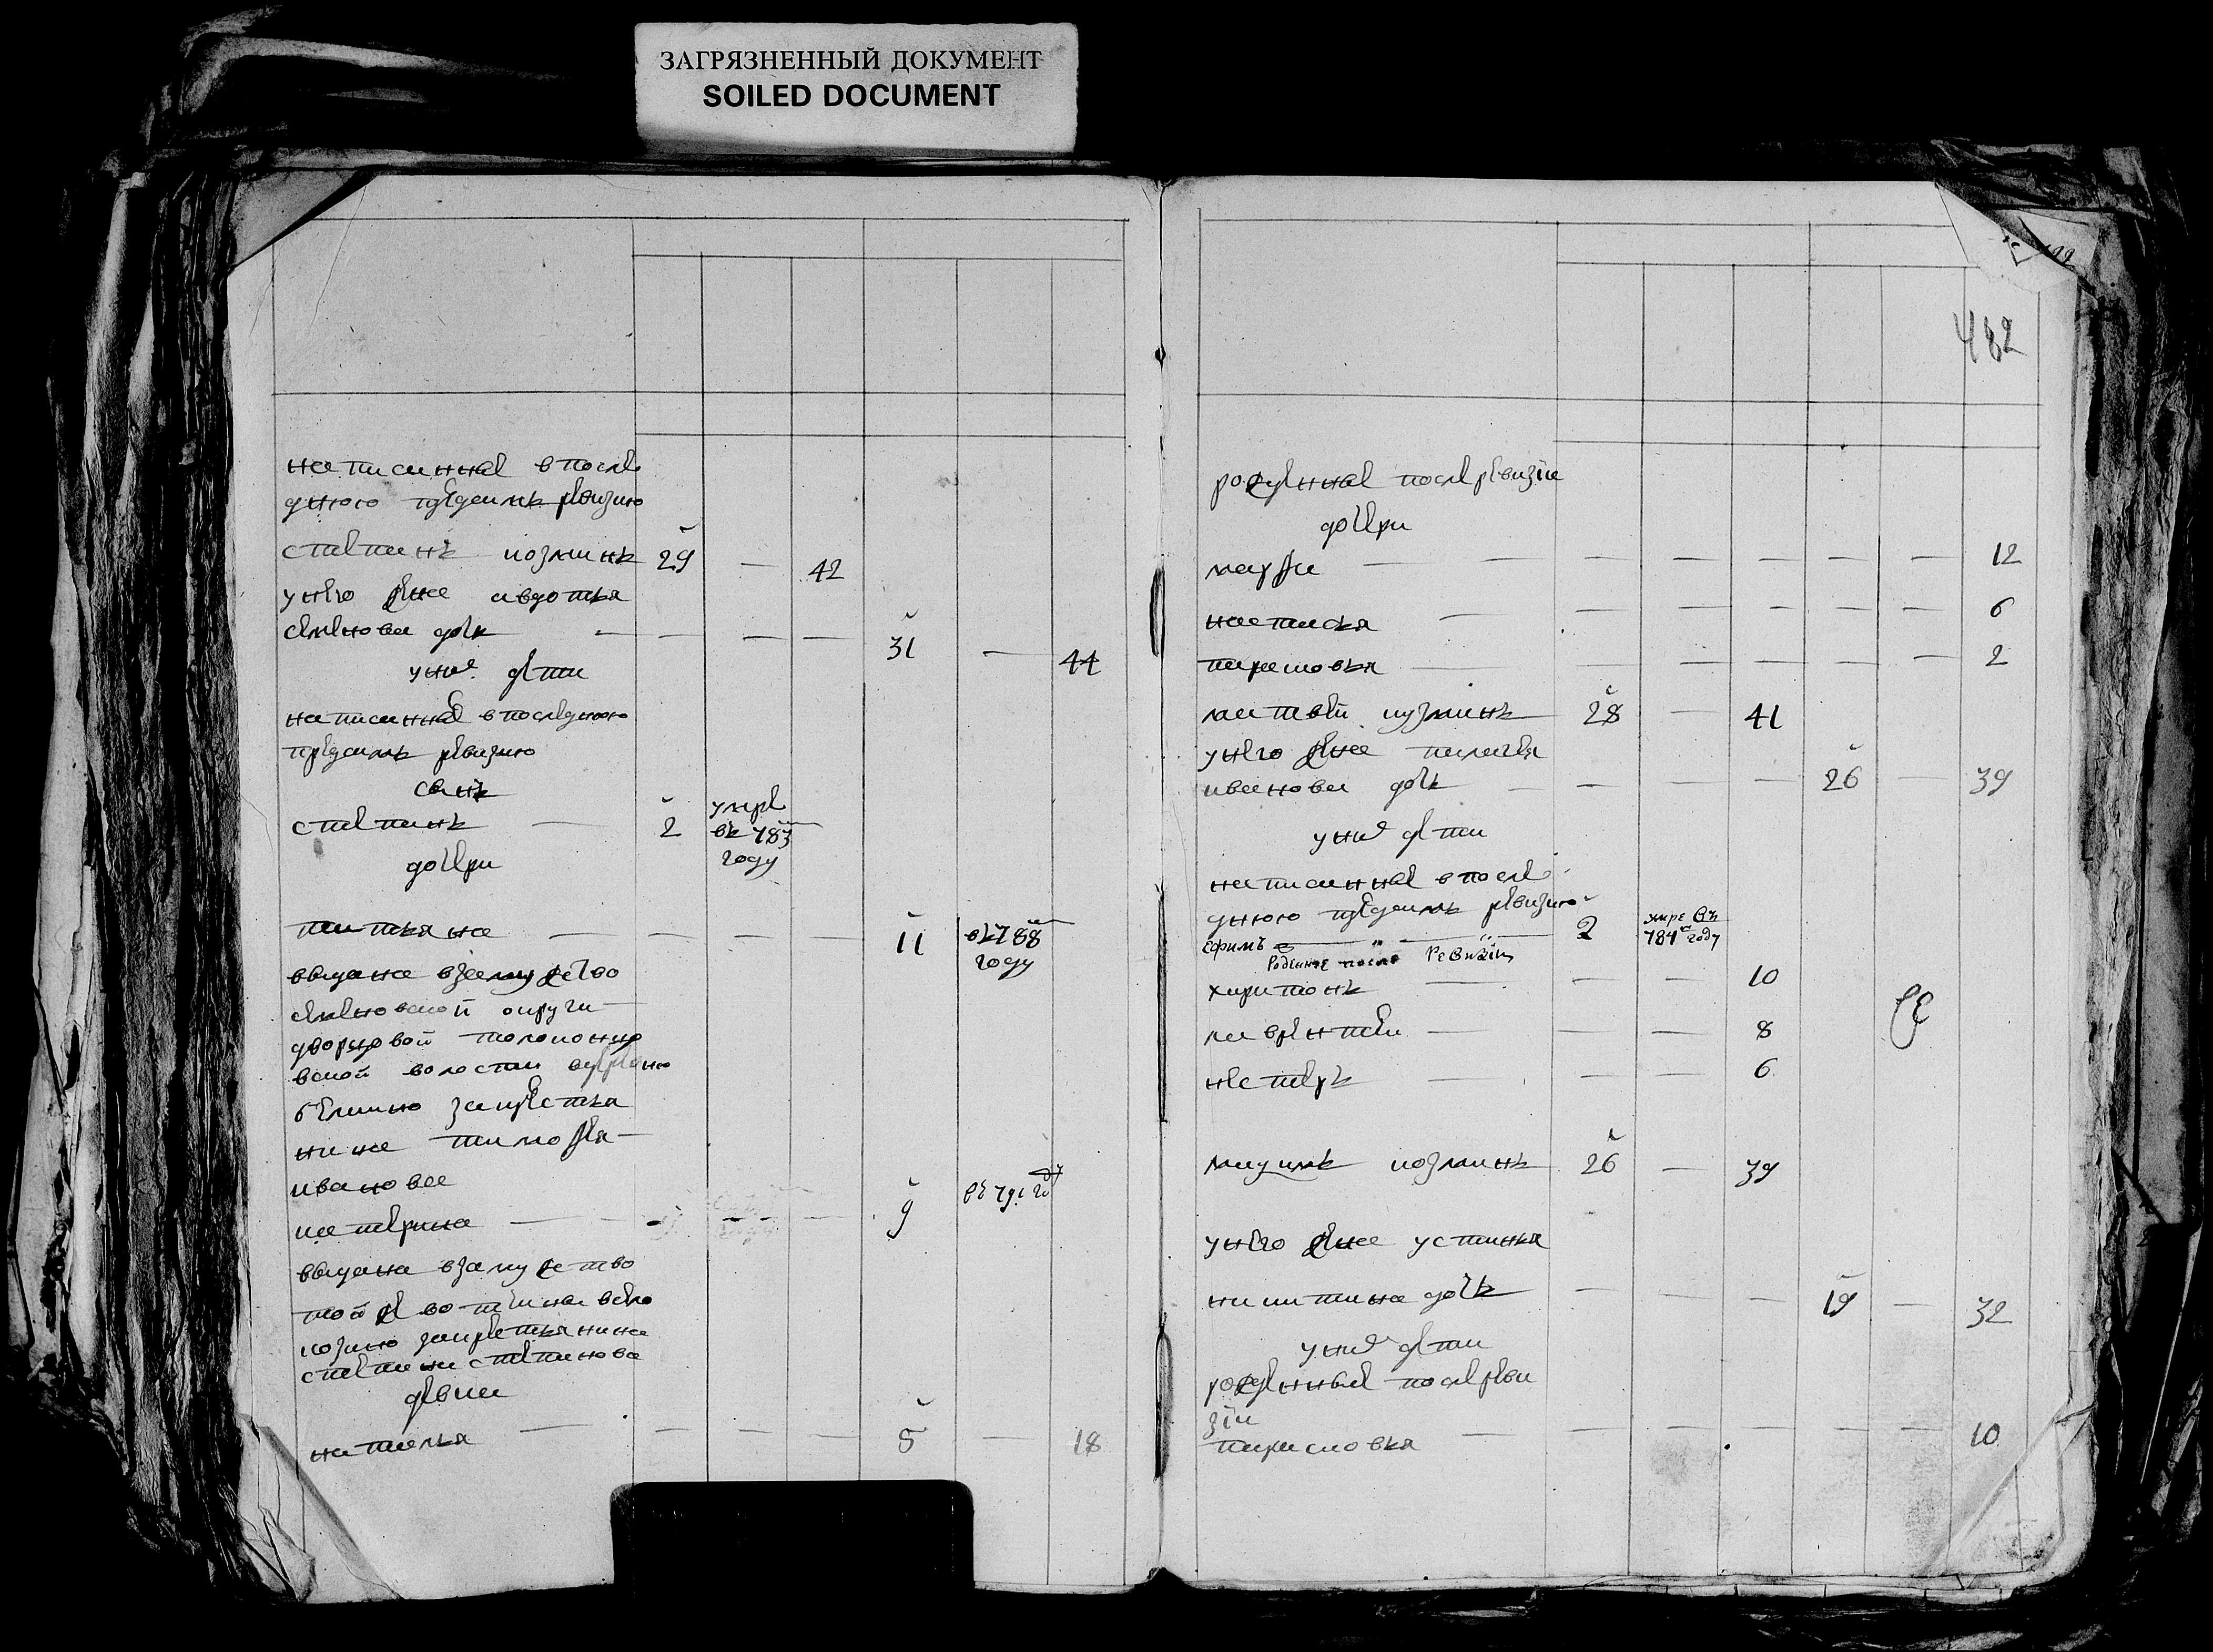 ЗАГРЯЗНЕННЫЙ ДОКУМЕНТ
SOILED DOCUMENT
написанные впосле
днюю предсимъ ревизию
степанъ козминъ 29 — 42
унего жена авдотья
семенова дочь — — — — 31 — 44
уних дети
написанные впоследнюю
предсимъ ревизию
сынъ
степанъ — 2 умре
въ 783
году
дочери
татьяна — — — — 11 въ 788
году
выдана взамужство
семеновской округи
дворцовой
вской волости
за крестья
нина тимофея
иванова
катерина — — — — 9 въ 791 году
выдана взамужство
той же вотчины всело
козино закрестьянина
степана степанова
девки
наталья — — — — — 5 — 18
482
рожденные после ревизии
дочери
марфа — — — — — — — 12
настасья — — — — — — 6
парасковья — — — — — — 2
матвей кузминъ 28 — 41
унего жена пелагея
иванова дочь — — — — 26 — 39
уних дети
написанные впосле
днюю предсимъ ревизию
ефимъ 2 умре въ
784 году
рожденные после ревизии
харитонъ — — — 10
лаврентей — — — 8
нестеръ — — — 6
козминъ 26 — 39
унего жена устинья
никитина дочь — — — 19 — 32
уних дети
рожденные после реви
зии
парасковья — — — — — — 10